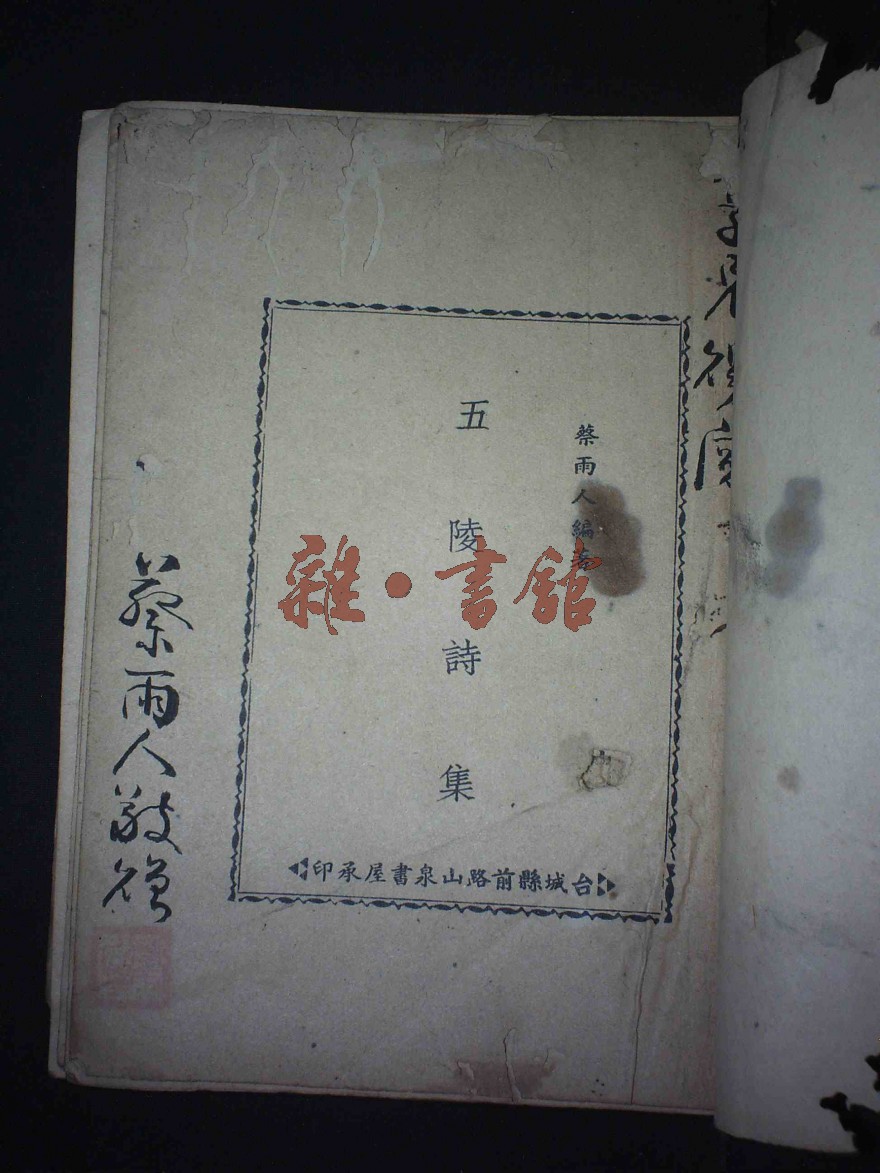 蔡雨人編著
五陵詩集
台城縣前路山泉書屋承印
蔡雨人敬贈
雜·書館